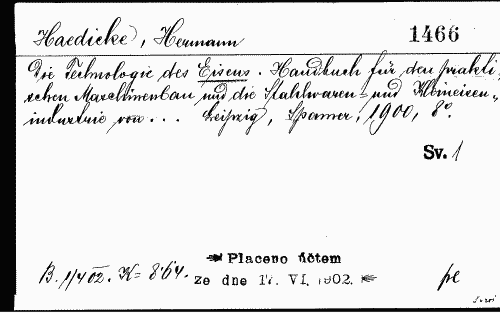 Haedicke, Hermann
1466
Die Technologie des Eisens. Handbuch für den prakti-
schen Maschinenbau und die Stahlwaren- und Kleineisen-
industrie von... Leipzig, Spamer, 1900, 8°.
Sv. 1
Placeno účtem
B. 1/4 02. K= 8·64. ze dne 17. VI. 1902.
pe